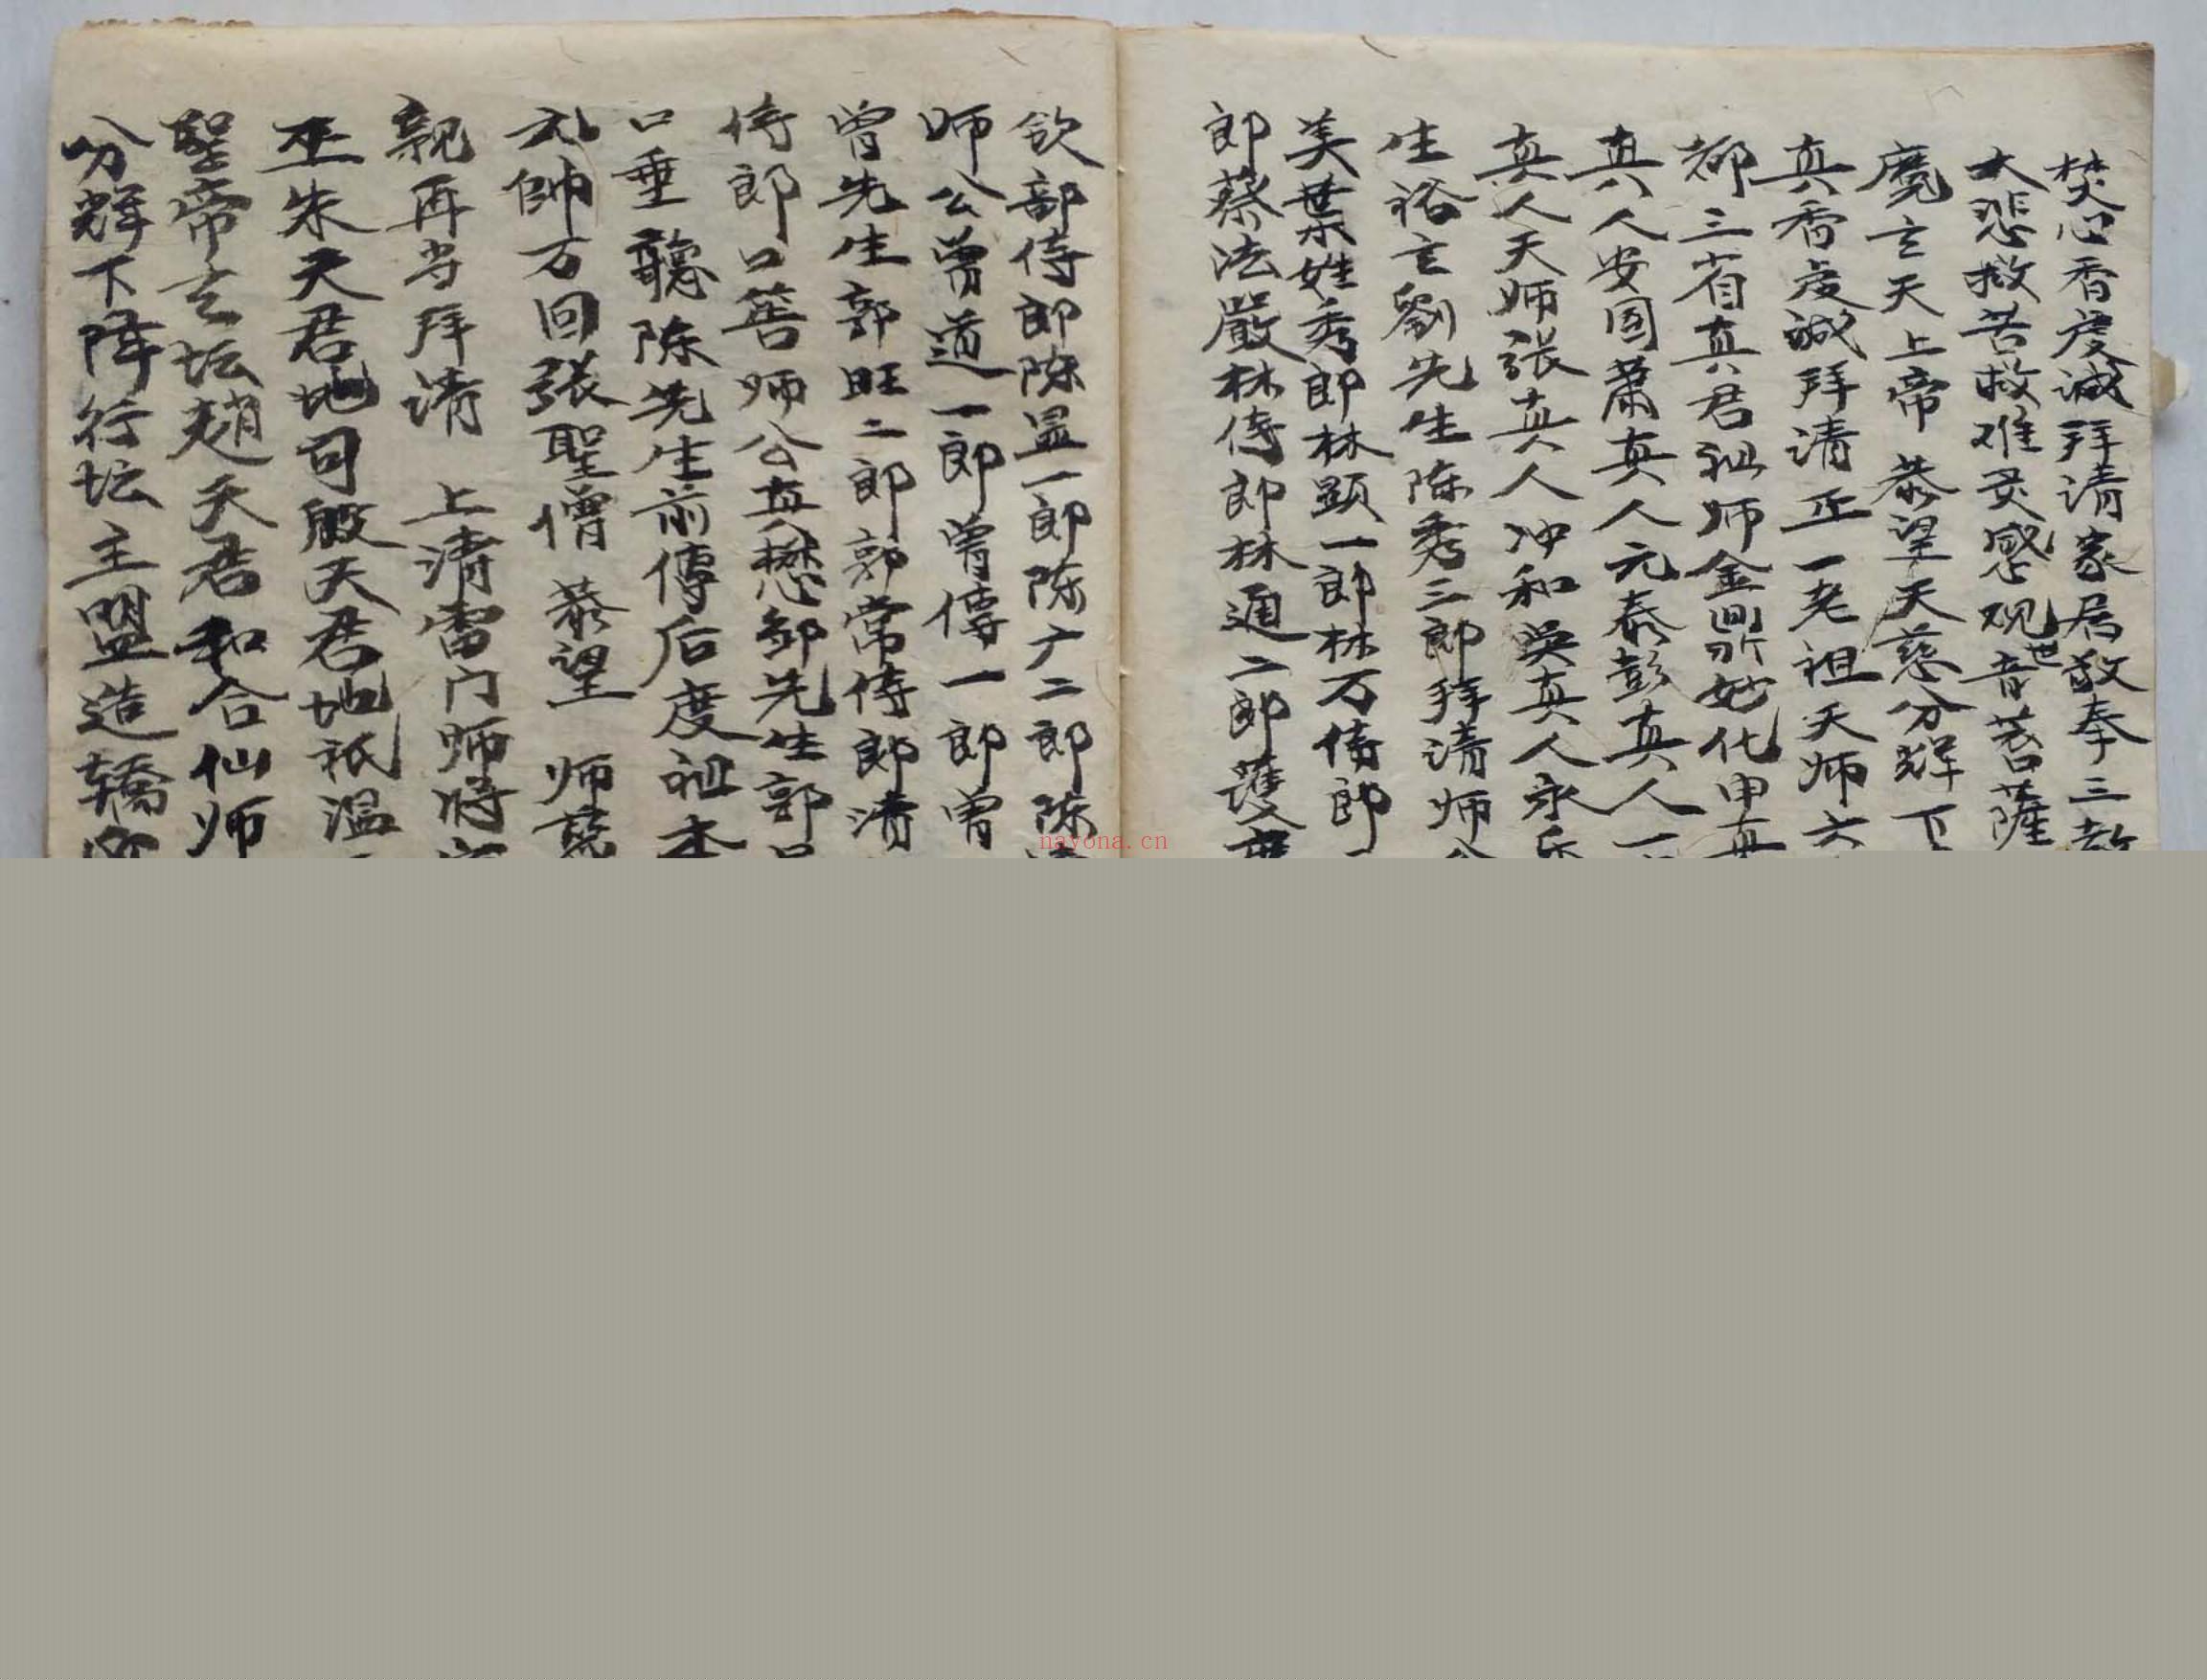 焚心香虔诚拜请家居敬奉三教
大悲救苦救难灵感观世音菩萨
魔玄天上帝 恭望天慈分辉下
真香虔诚拜请正一老祖天师六
都三省真君祖师金鼎妙化申真
真人安国萧真人元泰彭真人一
真人天师张真人冲和吳真人永
生裕玄劉先生陈秀三郎拜请师公
美葉姓秀郎林顕一郎林万侍郎
郎蔡法嚴林侍郎林通二郎護
欽部侍郎陈显一郎陈广二郎陈
师公曾道一郎曾傳一郎曾
曾先生郭旺二郎郭常侍郎清
侍郎口善师公真懋邹先生郭
口垂聽陈先生前傳后度祖本
元帥万回張聖僧 恭望 师慈
親再当拜请 上清雷门师将
巫朱天君地司殷天君地祇温
聖帝玄坛趙天君和合仙师
分辉下降行坛主盟造轎
nayona.cn